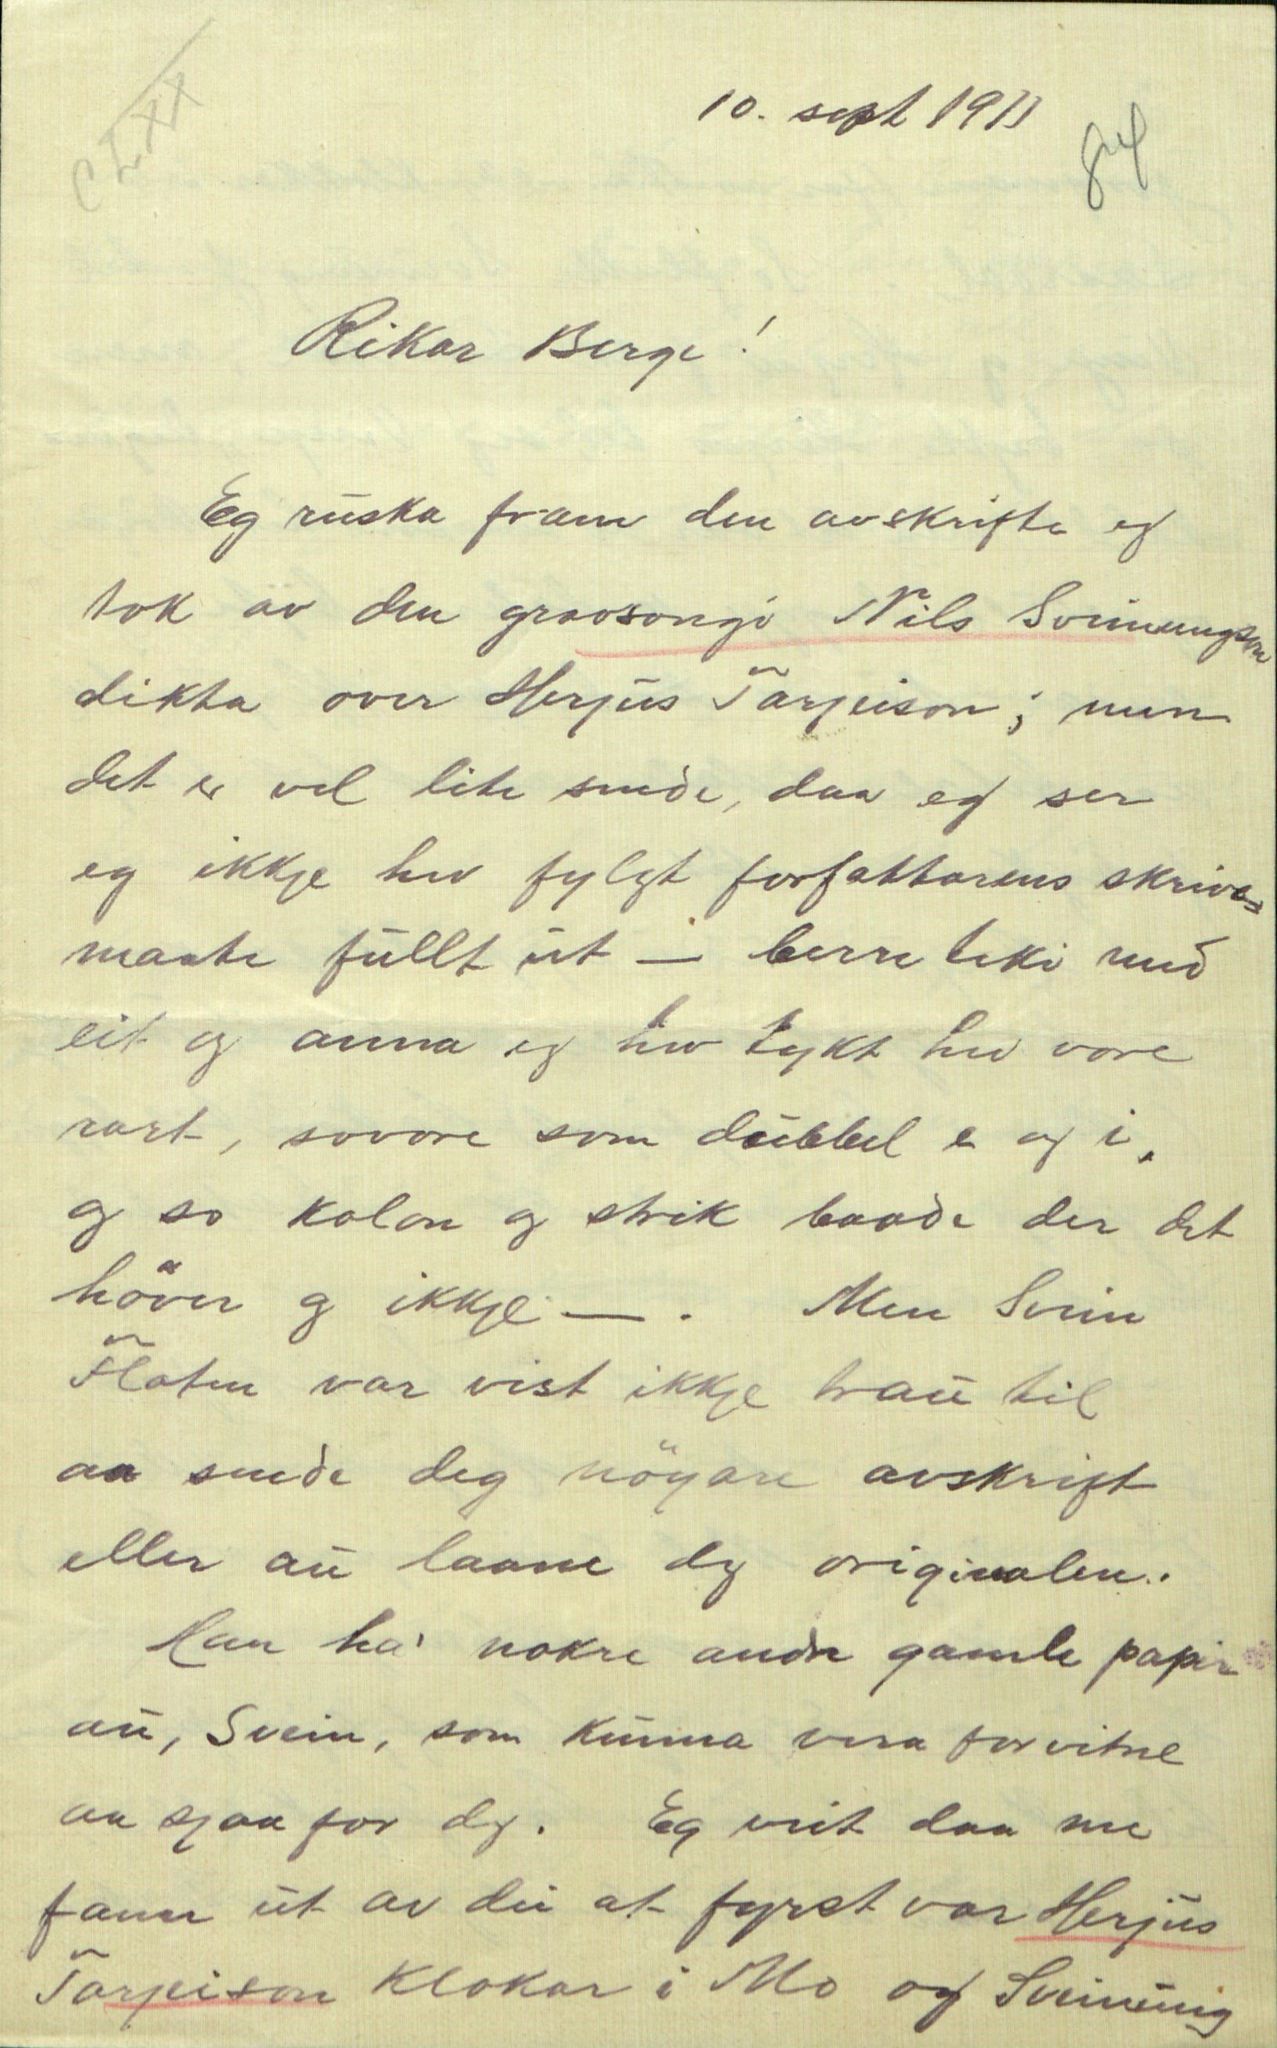 CLXX
10. sept 1911
84
Rikar Berge!
Eg ruska fram den avskrifte eg
tok av den gravsongi Nils Sveinungson
dikta over Herjus Tarjeison; men
det er vel lite sende, daa eg ser
eg ikkje hev fylgt forfattarens skrive=
maate fullt ut – berre teki med
eit og anna eg hev tykt hev vore
rart, sovore som dubbel e og i,
og so kolon og strik baade der det
höver og ikkje –. Men Svein
Flaten var vist ikkje trau til
aa sende deg nögare avskrift
eller au laane deg originalen.
Han ha' nokre andre gamle papir
au, Svein, som kunna vera forvitne
aa sjaa for deg. Eg veit daa me
fann ut av dei at fyrst var Herjus
Tarjeison klokar i Mo og Sveinung